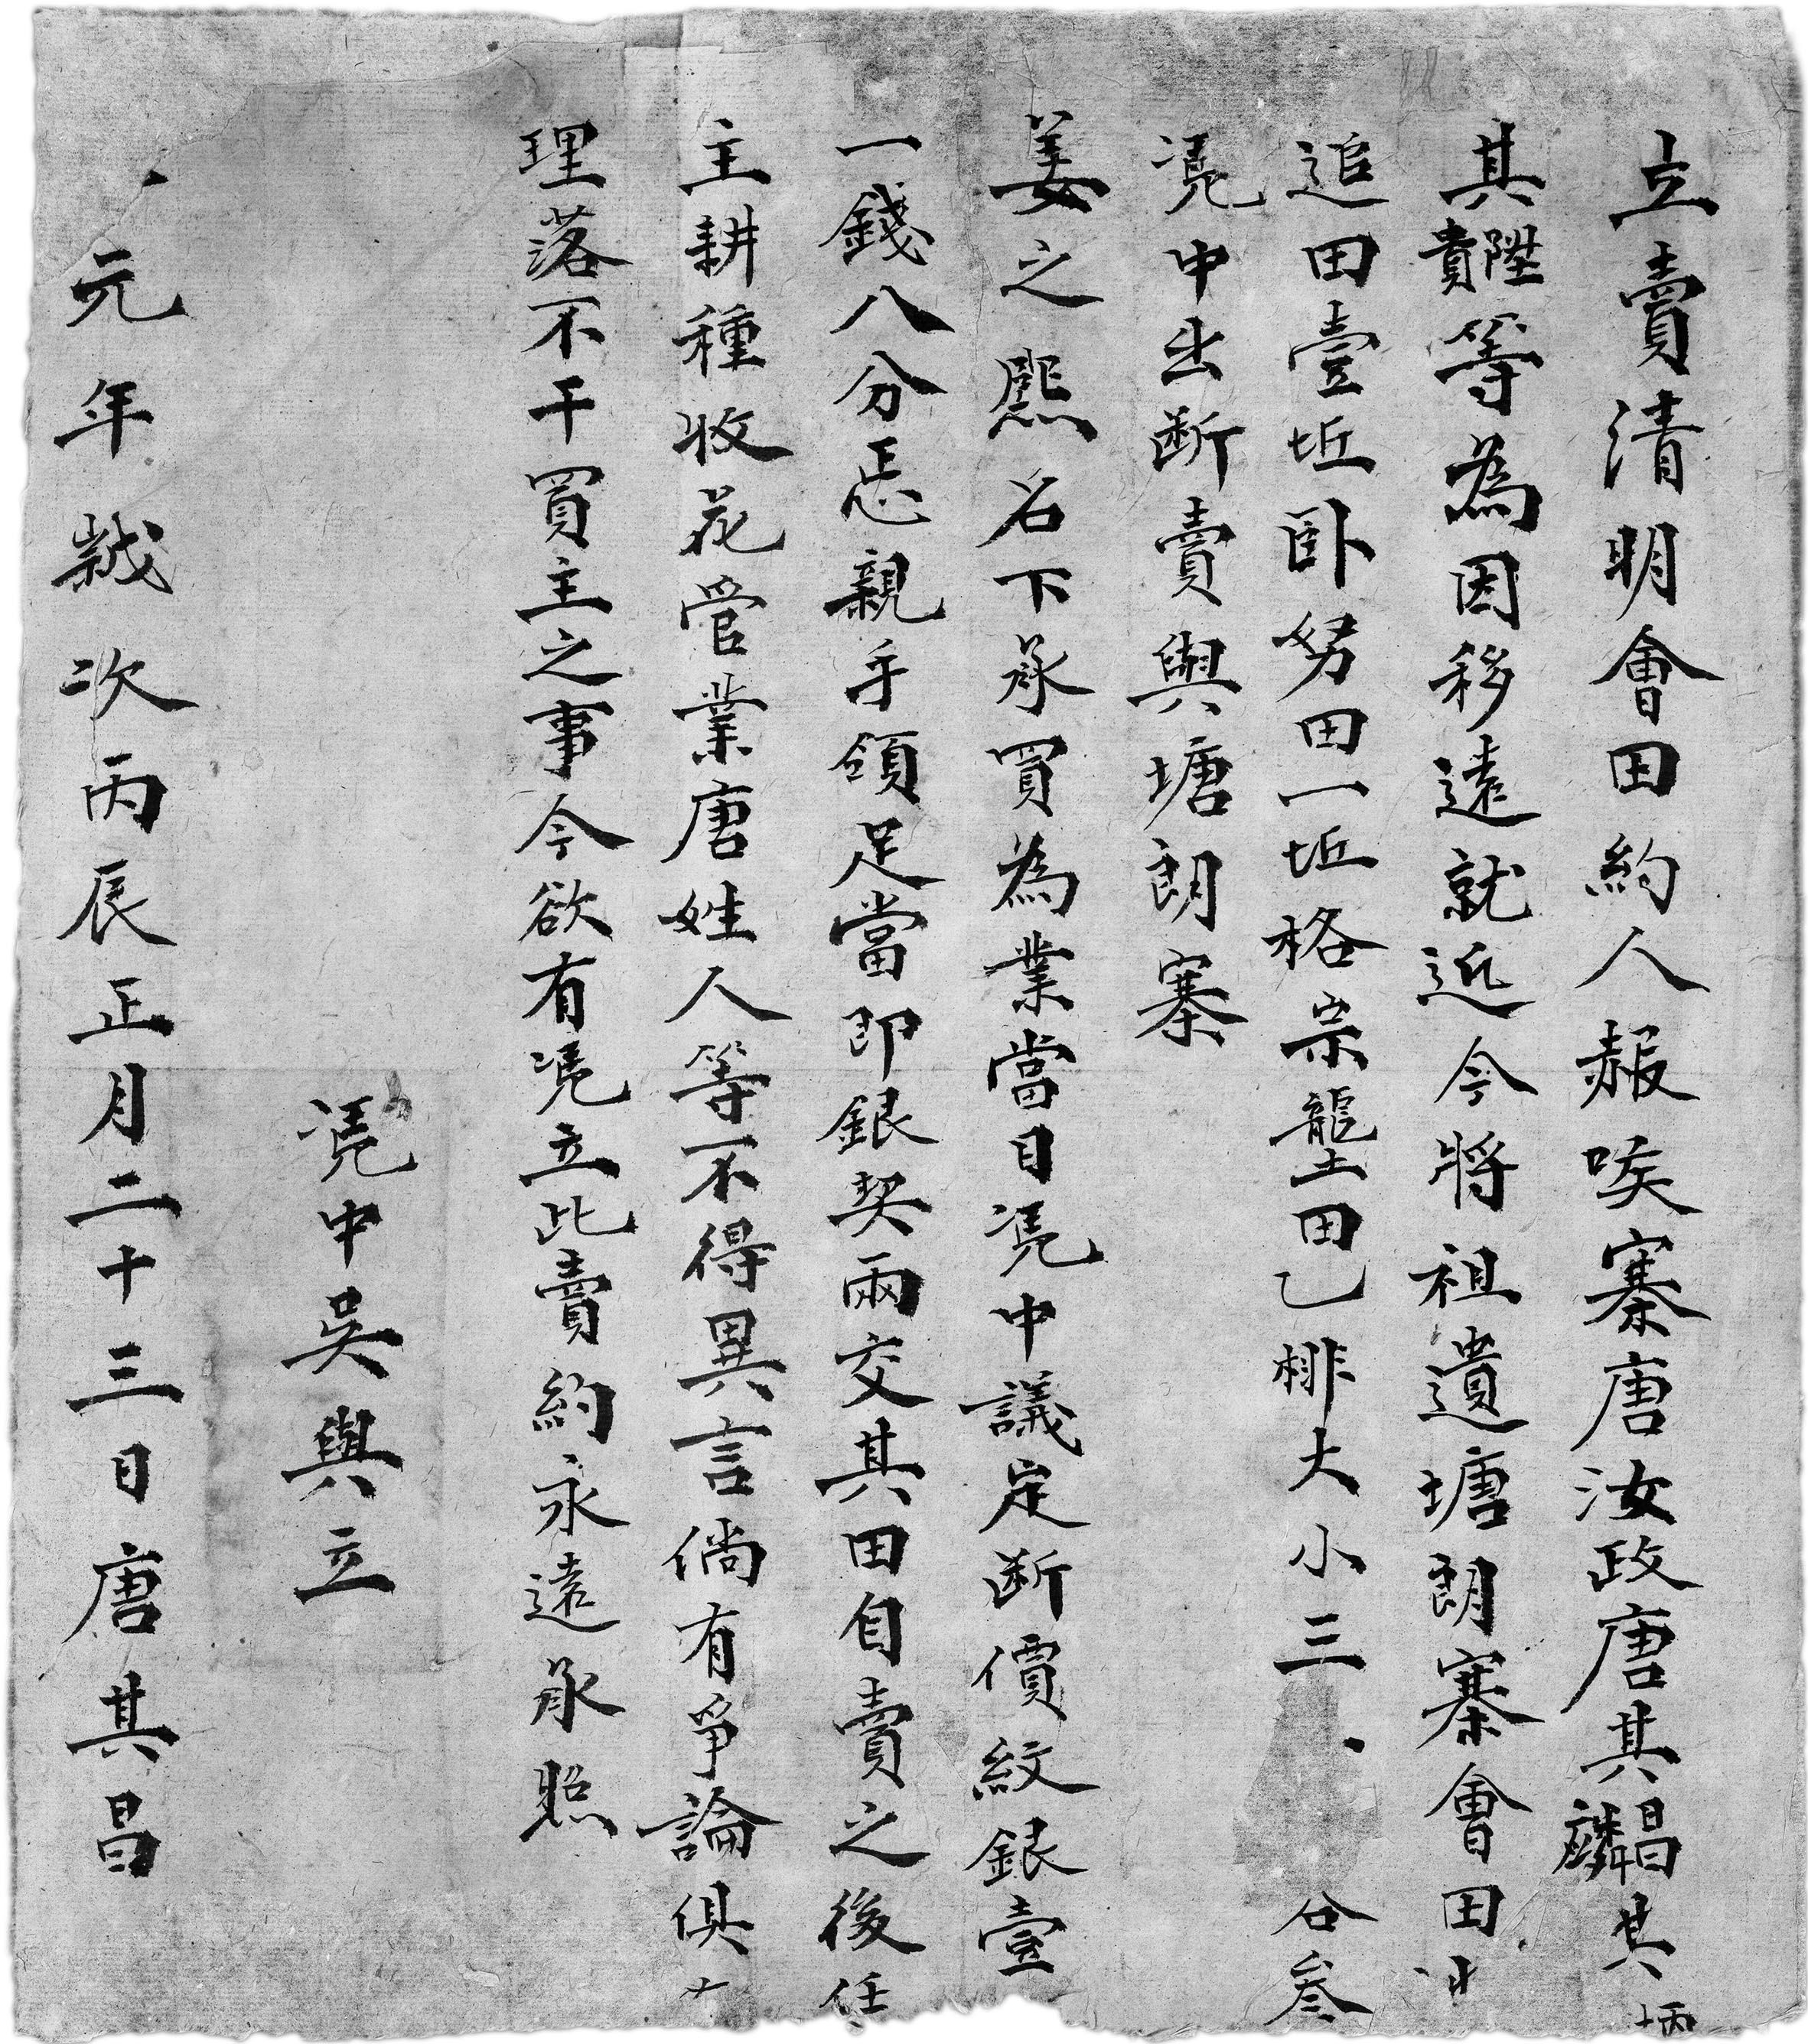 立賣清明會田約人赧唉寨唐汝政唐其昌麟其
其陞貴等為因移遠就近今將祖遺塘朗寨會田
追田壹坵卧努田一坵格宗壟田乙排大小三
憑中出断賣與塘朗寨
姜之熙名下承買為業當日憑中議定断價紋銀壹
一錢八分悉親手領足當即銀契兩交其田自賣之後任
主耕種收花管業唐姓人等不得異言倘有爭論俱
理落不干買主之事今欲有憑立此賣約永遠承照
憑中吳與立
元年歲次丙辰正月二十三日唐其昌